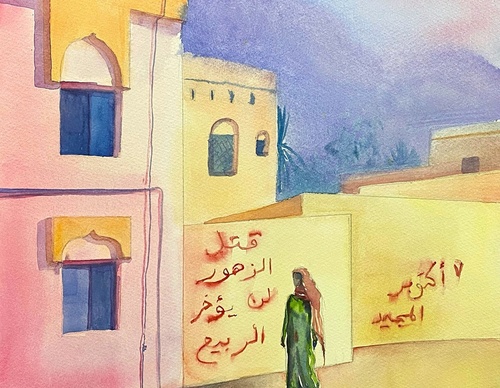 قتل
الزهور
لن يؤخر
الربيع
٧ أكتوبر
المجيد